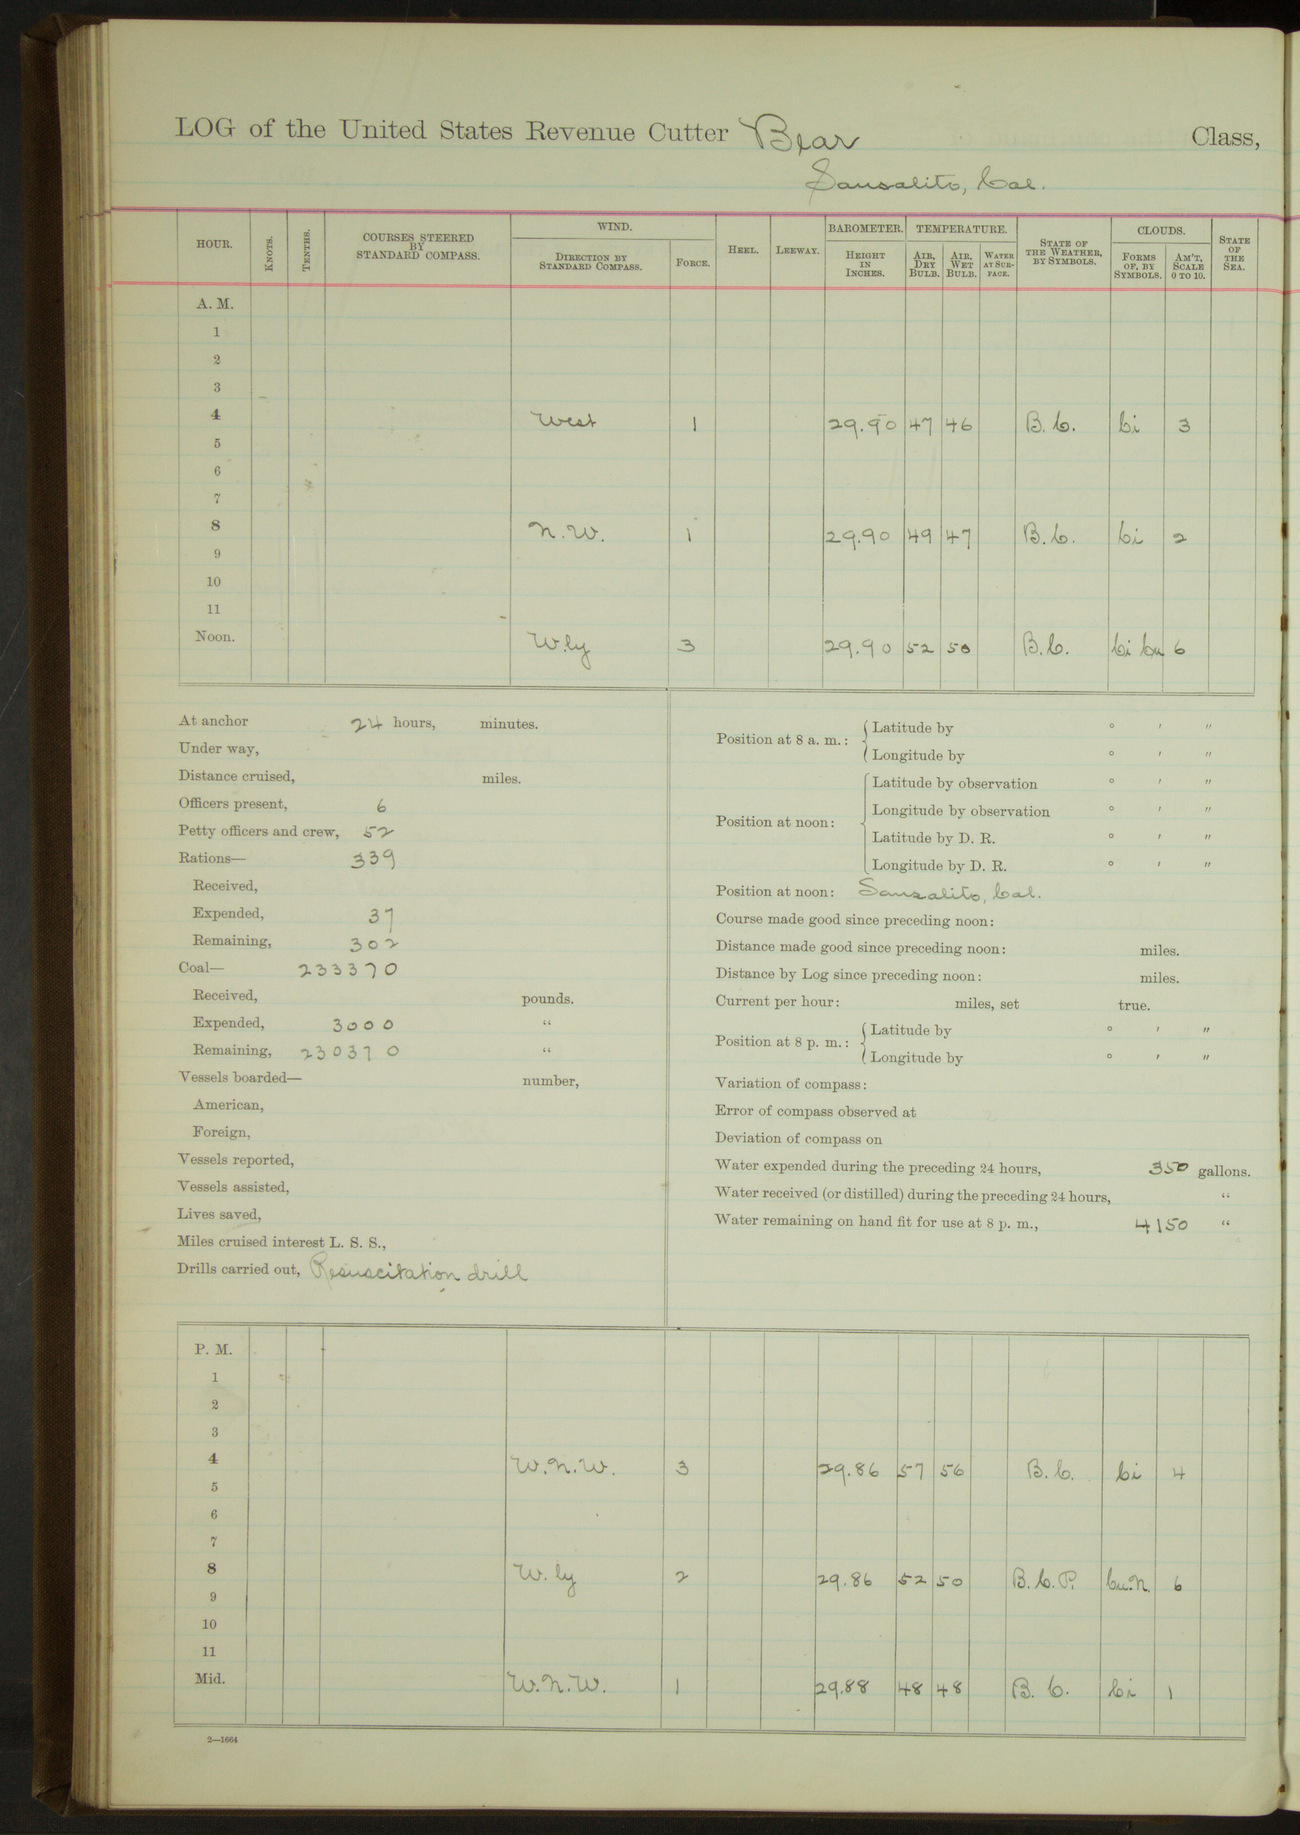 LOG of the United States Revenue Cutter Bear Class,
Sausalito, Cal.
HOUR. KNOTS. TENTHS. COURSES STEERED BY STANDARD COMPASS. WIND. DIRECTION BY STANDARD COMPASS. FORCE. HEEL. LEEWAY. BAROMETER. HEIGHT IN INCHES. TEMPERATURE. AIR, DRY BULB. AIR, WET BULB. WATER AT SURFACE. STATE OF THE WEATHER, BY SYMBOLS. CLOUDS. FORMS OF, BY SYMBOLS. AM'T, SCALE 0 TO 10. STATE OF THE SEA.
A. M.
1
2
3
4 West 1 29.90 47 46 B. C. Ci 3
5
6
7
8 N.W. 1 29.90 49 47 B.C. Ci 2
9
10
11
Noon. W.ly 3 29.90 52 50 B.C. Ci Cu 6
At anchor 24 hours, minutes.
Under way,
Distance cruised, miles.
Officers present, 6
Petty officers and crew, 52
Rations— 339
Received,
Expended, 37
Remaining, 302
Coal— 233370
Received, pounds.
Expended, 3000 "
Remaining, 230370 "
Vessels boarded— number,
American,
Foreign,
Vessels reported,
Vessels assisted,
Lives saved,
Miles cruised interest L. S. S.,
Drills carried out, Resuscitation drill
Position at 8 a. m.: Latitude by ° ′ ″
Longitude by ° ′ ″
Position at noon: Latitude by observation ° ′ ″
Longitude by observation ° ′ ″
Latitude by D. R. ° ′ ″
Longitude by D. R. ° ′ ″
Position at noon: Sausalito, Cal.
Course made good since preceding noon:
Distance made good since preceding noon: miles.
Distance by Log since preceding noon: miles.
Current per hour: miles, set true.
Position at 8 p. m.: Latitude by ° ′ ″
Longitude by ° ′ ″
Variation of compass:
Error of compass observed at
Deviation of compass on
Water expended during the preceding 24 hours, 350 gallons.
Water received (or distilled) during the preceding 24 hours, "
Water remaining on hand fit for use at 8 p. m., 4150 "
P. M.
1
2
3
4 W.N.W. 3 29.86 57 56 B.C. Ci 4
5
6
7
8 W.ly 2 29.86 52 50 B.C.P. Cu.N. 6
9
10
11
Mid. W.N.W. 1 29.88 48 48 B. C. Ci 1
2—1664